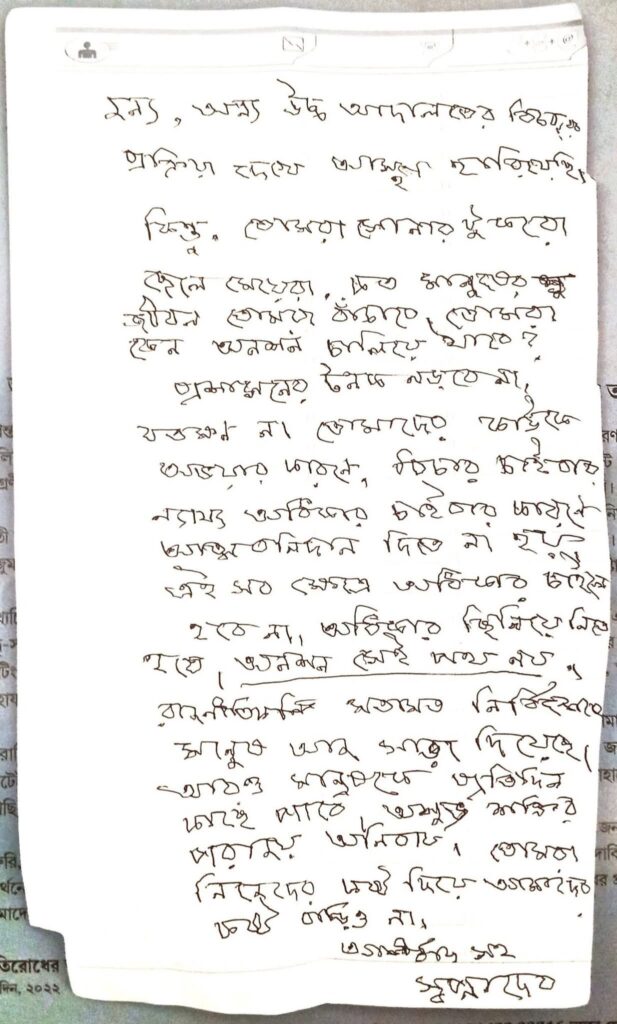 জন্য, অন্য উচ্চ আদালতের বিচার
প্রক্রিয়া দেখে আস্থা হারিয়েছি।
কিন্তু, তোমরা সোনার টুকরো
ছেলে মেয়েরা, কত মানুষের
জীবন তোমরা বাঁচাবে, তোমরা
কেন অনশন চালিয়ে যাবে?
প্রশাসনের টনক নড়বে না,
যতক্ষণ না তোমাদের কাউকে
অভয়ার কারণে, বিচার চাইবার
ন্যায্য অধিকার চাইবার কারণে
আত্মবলিদান দিতে না হয়।
এই সব ক্ষেত্রে অধিকার চাইলে
হবে না, অধিকার ছিনিয়ে নিতে
হবে, অনশন সেই পথ নয়।
রাজনীতি মতামত নির্বিশেষে
মানুষ আজ সাড়া দিয়েছে।
আরও মানুষকে প্রতিদিন
কাছে পাবে, অশুভ শক্তির
পরাজয় অনিবার্য। তোমরা
নিজেদের কষ্ট দিয়ে আমাদের
কষ্ট বাড়িও না,
আশীর্বাদ সহ
তিরোধের
দিন, ২০২২